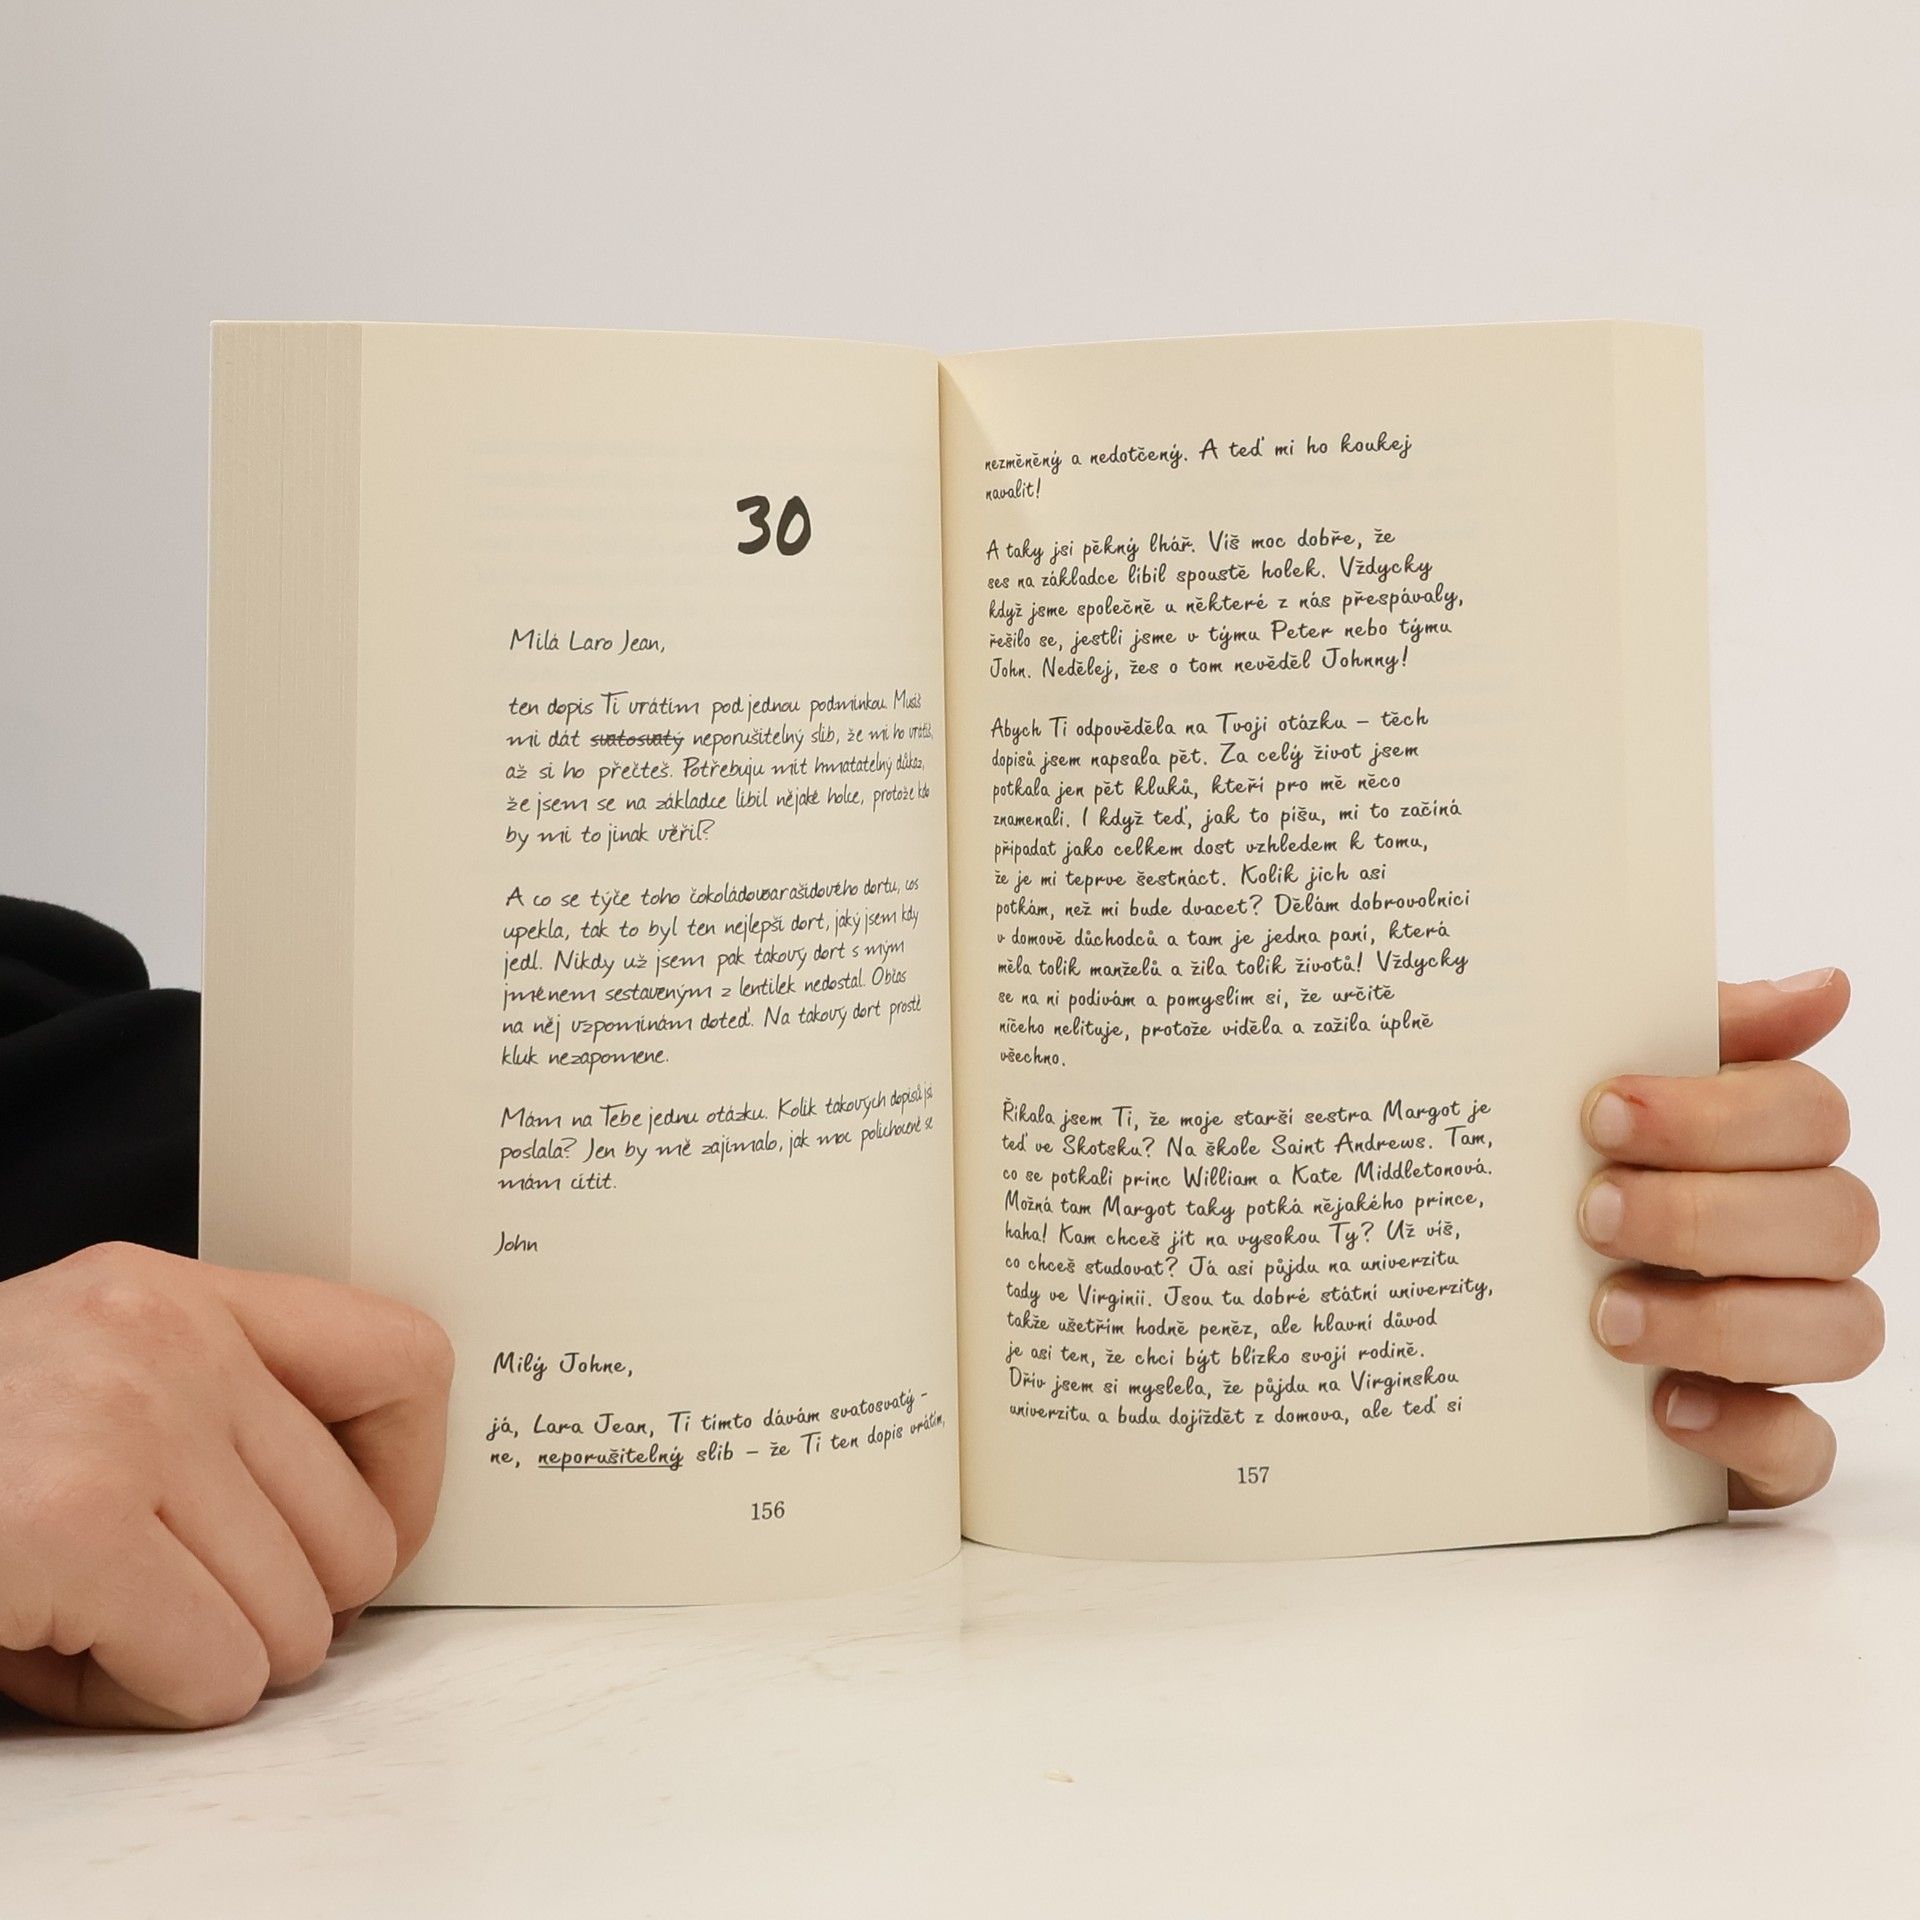 30
Milá Laro Jean,
ten dopis Ti vrátím pod jednou podmínkou. Musíš
mi dát svatosvatý neporušitelný slib, že mi ho vrátíš,
až si ho přečteš. Potřebuju mít hmatatelný důkaz,
že jsem se na základce líbil nějaké holce, protože kdo
by mi to jinak věřil?
A co se týče toho čokoládovoarašídového dortu, cos
upekla, tak to byl ten nejlepší dort, jaký jsem kdy
jedl. Nikdy už jsem pak takový dort s mým
jménem sestaveným z lentilek nedostal. Občas
na něj vzpomínám doteď. Na takový dort prostě
kluk nezapomene.
Mám na Tebe jednu otázku. Kolik takových dopisů jsi
poslala? Jen by mě zajímalo, jak moc polichoceně se
mám cítit.
John
Milý Johne,
já, Lara Jean, Ti tímto dávám svatosvatý –
ne, neporušitelný slib – že Ti ten dopis vrátím,
156
nezměněný a nedotčený. A teď mi ho koukej
navalit!
A taky jsi pěkný lhář. Víš moc dobře, že
ses na základce líbil spoustě holek. Vždycky
když jsme společně u některé z nás přespávaly,
řešilo se, jestli jsme v týmu Peter nebo týmu
John. Nedělej, žes o tom nevěděl Johnny!
Abych Ti odpověděla na Tvoji otázku – těch
dopisů jsem napsala pět. Za celý život jsem
potkala jen pět kluků, kteří pro mě něco
znamenali. I když teď, jak to píšu, mi to začíná
připadat jako celkem dost vzhledem k tomu,
že je mi teprve šestnáct. Kolik jich asi
potkám, než mi bude dvacet? Dělám dobrovolnici
v domově důchodců a tam je jedna paní, která
měla tolik manželů a žila tolik životů! Vždycky
se na ni podívám a pomyslím si, že určitě
ničeho nelituje, protože viděla a zažila úplně
všechno.
Říkala jsem Ti, že moje starší sestra Margot je
teď ve Skotsku? Na škole Saint Andrews. Tam,
co se potkali princ William a Kate Middletonová.
Možná tam Margot taky potká nějakého prince,
haha! Kam chceš jít na vysokou Ty? Už víš,
co chceš studovat? Já asi půjdu na univerzitu
tady ve Virginii. Jsou tu dobré státní univerzity,
takže ušetřím hodně peněz, ale hlavní důvod
je asi ten, že chci být blízko svojí rodině.
Dřív jsem si myslela, že půjdu na Virginskou
univerzitu a budu dojíždět z domova, ale teď si
157